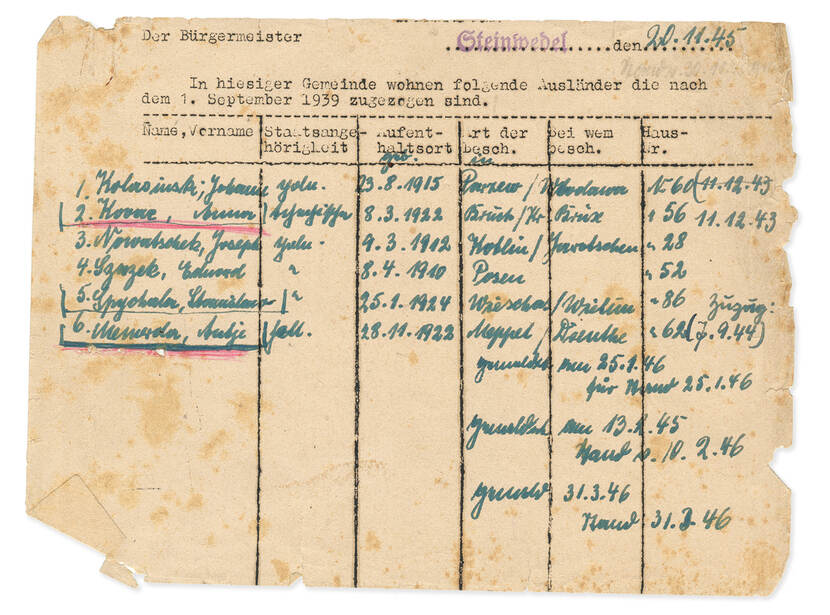 Der Bürgermeister Steinwedel den 20.11.45
In hiesiger Gemeinde wohnen folgende Ausländer die nach
dem 1. September 1939 zugezogen sind.
Name, Vorname Staatsange- Aufent- Art der bei wem Haus-
hörigkeit haltsort besch. besch. Nr.
geb. in
1. Kolasinski, Johann poln. 23.8.1915 Parzew / Wlodawa 60 (11.12.43
2. Kovac, Anna tschechische 8.3.1922 Bruch / Kr. Brüx " 56 11.12.43
3. Nowatschek, Joseph poln. 9.3.1912 Koblin / Jarotschen " 28
4. Eduard " 8.4.1910 Posen " 52
5. Spychala, Stanislaw " 25.1.1924 / Wielun " 86 Zuzug:
6. Antje holl. 28.11.1922 Meppel / Drenthe " 62 (7.9.44)
gemeldet am 25.1.46
für Stand 25.1.46
gemeldet am 13.2.45
Stand v. 10.2.46
gemeld 31.3.46
Stand 31.3.46